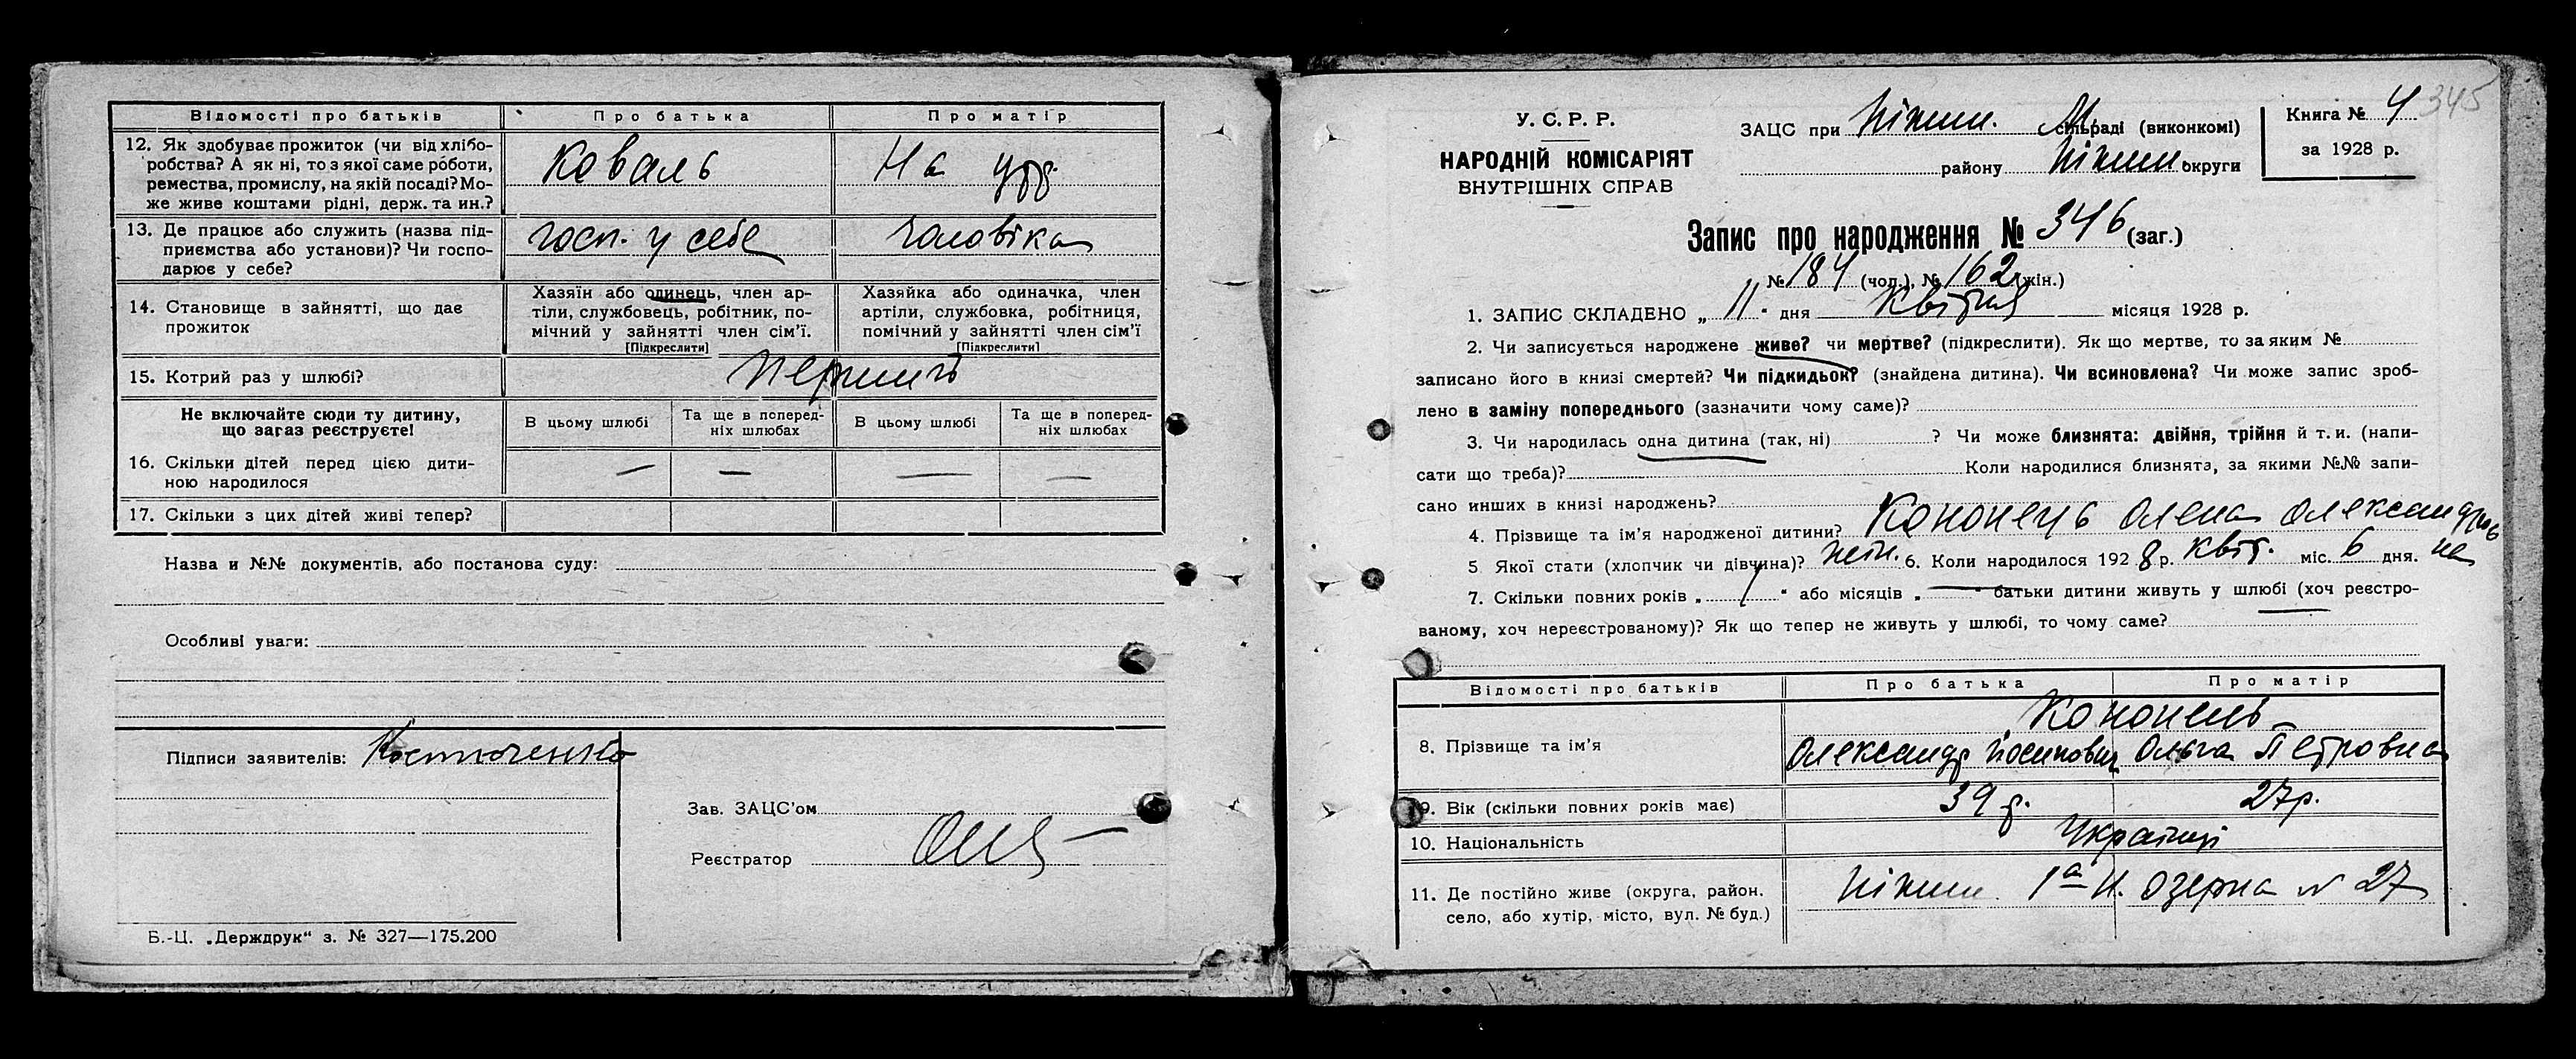 Відомості про батьків Про батька Про матір
12. Як здобуває прожиток (чи від хлібо-
робства? А як ні, то з якої саме роботи,
ремества, промислу, на якій посаді? Мо-
же живе коштами рідні, держ. та ин.?
Коваль На
13. Де працює або служить (назва під-
приємства або установи)? Чи госпо-
дарює у себе?
госп. у себе чоловіка
14. Становище в зайнятті, що дає
прожиток
Хазяїн або одинець, член ар-
тілі, службовець, робітник, по-
мічний у зайнятті член сім'ї.
[Підкреслити]
Хазяйка або одиначка, член
артіли, службовка, робітниця,
помічний у зайнятті член сім'ї
[Підкреслити]
15. Котрий раз у шлюбі?
Не включайте сюди ту дитину,
що загаз реєструєте!
В цьому шлюбі
Та ще в поперед-
ніх шлюбах
В цьому шлюбі
Та ще в поперед-
ніх шлюбах
16. Скільки дітей перед цією дити-
ною народилося
— — — —
17. Скільки з цих дітей живі тепер?
Назва и №№ документів, або постанова суду:
Особливі уваги:
Підписи заявителів: Костюченко
Зав. ЗАЦС'ом
Реєстратор
Б.-Ц. „Держдрук“ з. № 327—175.200
345
У. С. Р. Р.
НАРОДНІЙ КОМІСАРІЯТ
ВНУТРІШНІХ СПРАВ
ЗАЦС при Ніжин. М. сільраді (виконкомі)
району Ніжин. округи
Книга № 4
за 1928 р.
Запис про народження № 346 (заг.)
№ 184 (чол.), № 162 (жін.)
1. ЗАПИС СКЛАДЕНО „ 11 “ дня Квітня місяця 1928 р.
2. Чи записується народжене живе? чи мертве? (підкреслити). Як що мертве, то за яким №
записано його в книзі смертей? Чи підкидьок? (знайдена дитина). Чи всиновлена? Чи може запис зроб-
лено в заміну попереднього (зазначити чому саме)?
3. Чи народилась одна дитина (так, ні) ? Чи може близнята: двійня, трійня й т. и. (напи-
сати що треба)? Коли народилися близнята, за якими №№ запи-
сано инших в книзі народжень?
4. Прізвище та ім'я народженої дитини? Кононець Олена Олександрів
на
5 Якої стати (хлопчик чи дівчина)? жін. 6. Коли народилося 192 8 р. квіт. міс. 6 дня.
7. Скільки повних років „ 1 “ або місяців „ — “ батьки дитини живуть у шлюбі (хоч реєстро-
ваному, хоч нереєстрованому)? Як що тепер не живуть у шлюбі, то чому саме?
Відомості про батьків Про батька Про матір
Кононець
8. Прізвище та ім'я Олександр Йосипович Ольга Петровна
9. Вік (скільки повних років має) 39 р. 27 р.
10. Національність Українці
11. Де постійно живе (округа, район.
село, або хутір, місто, вул. № буд.)
Ніжин 1а Н. Озерна № 27